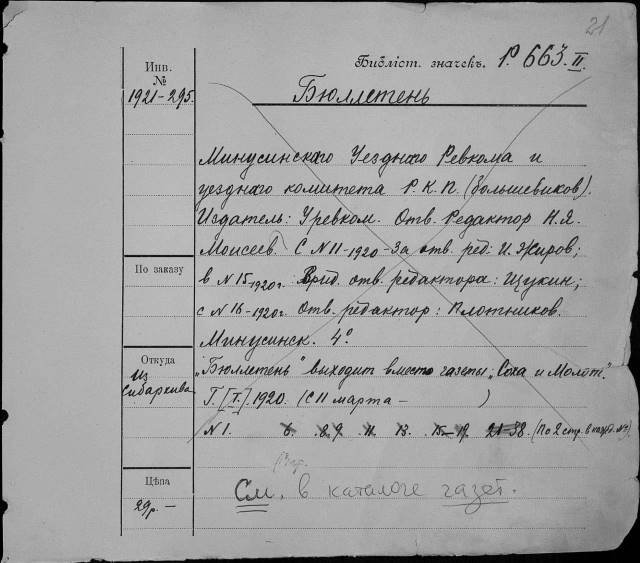 21
Инв.
№
1921-295.
Библіот. значекъ. Р. 663 II.
Бюллетень
Минусинского Уездного Ревкома и
уездного комитета Р.К.П. (большевиков).
Издатель: Уревком. Отв. Редактор Н.Я.
Моисеев. С N 11-1920-За отв. ред: И. Жиров;
По заказу
в N 15-1920г. Врид. отв. редактора: Щукин;
с N 16-1920г. Отв. редактор: Плотников.
Минусинск. 4°.
Откуда
Из
Сибархива
„Бюллетень" выходит вместо газеты „Соха и Молот".
Г. [I]. 1920. (С 11 марта - )
N 1. 6. 8 9 11. 13. 15-19. 21-38. (По 2 стр. в кажд. №)
Цѣна
29р.-
См. в каталоге газет.